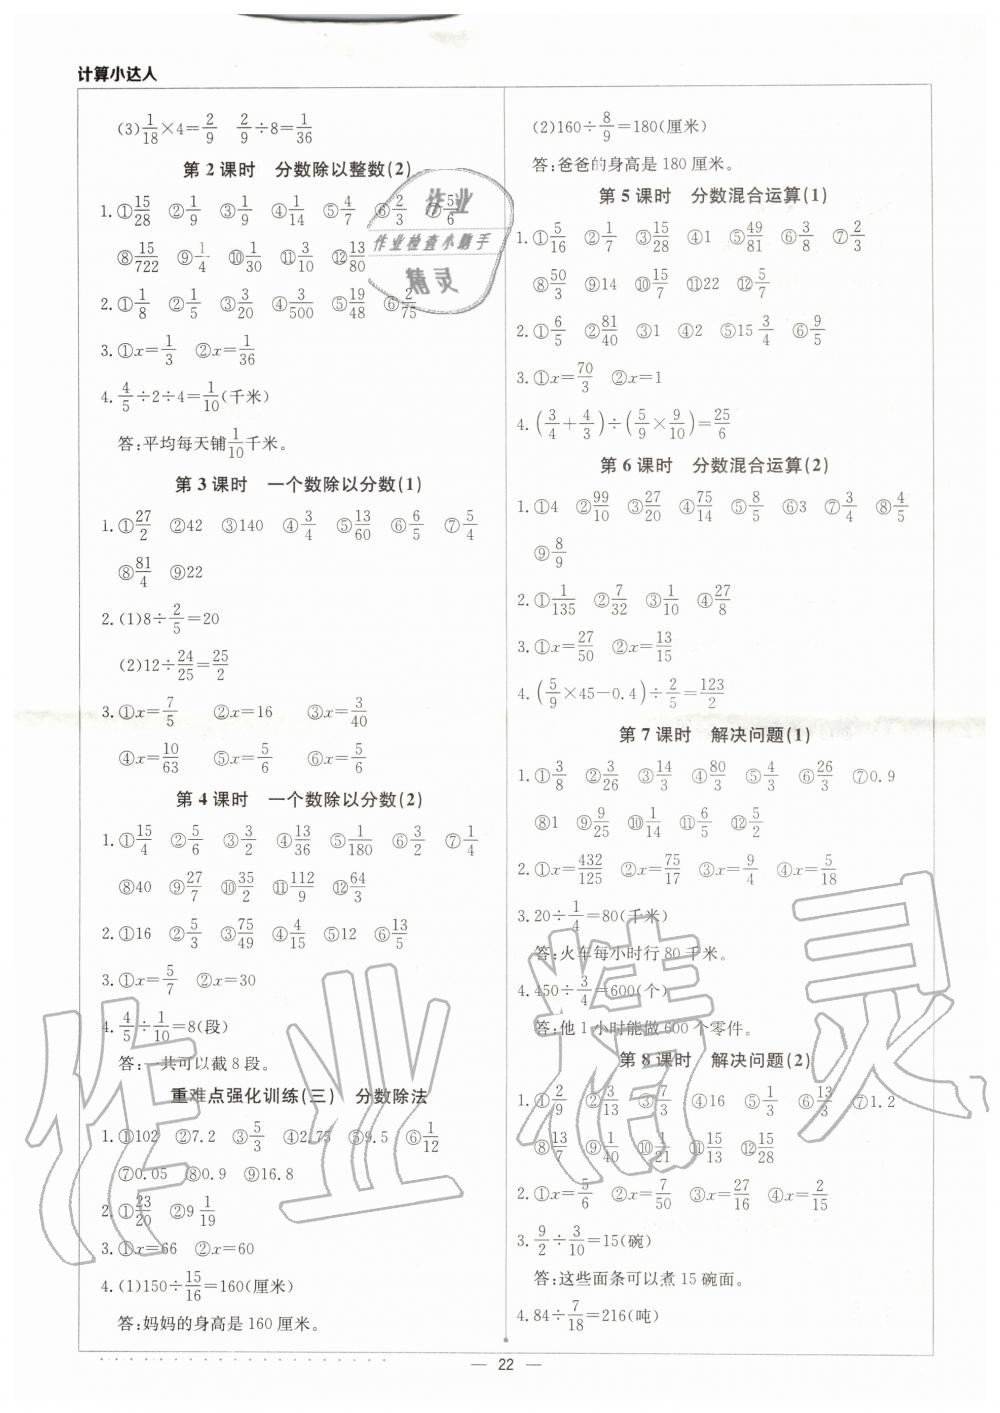 计算小达人
(3)1/18×4=2/9 2/9÷8=1/36
第 2 课时 分数除以整数(2)
1.①15/28 ②1/9 ③1/9 ④1/14 ⑤4/7 ⑥2/3 ⑦5/6
⑧15/722 ⑨1/4 ⑩1/30 ⑪3/10 ⑫13/80
2.①1/8 ②1/5 ③3/20 ④3/500 ⑤19/48 ⑥2/75
3.①x=1/3 ②x=1/36
4.4/5÷2÷4=1/10(千米)
答:平均每天铺1/10千米。
第 3 课时 一个数除以分数(1)
1.①27/2 ②42 ③140 ④3/4 ⑤13/60 ⑥6/5 ⑦5/4
⑧81/4 ⑨22
2.(1)8÷2/5=20
(2)12÷24/25=25/2
3.①x=7/5 ②x=16 ③x=3/40
④x=10/63 ⑤x=5/6 ⑥x=5/6
第 4 课时 一个数除以分数(2)
1.①15/4 ②5/6 ③3/2 ④13/36 ⑤1/180 ⑥3/2 ⑦1/4
⑧40 ⑨27/7 ⑩35/2 ⑪112/9 ⑫64/3
2.①16 ②5/3 ③75/49 ④4/15 ⑤12 ⑥13/5
3.①x=5/7 ②x=30
4.4/5÷1/10=8(段)
答:一共可以截 8 段。
重难点强化训练(三) 分数除法
1.①102 ②7.2 ③5/3 ④2.75 ⑤9.5 ⑥1/12
⑦0.05 ⑧0.9 ⑨16.8
2.①23/20 ②9 1/19
3.①x=66 ②x=60
4.(1)150÷15/16=160(厘米)
答:妈妈的身高是 160 厘米。
(2)160÷8/9=180(厘米)
答:爸爸的身高是 180 厘米。
第 5 课时 分数混合运算(1)
1.①5/16 ②1/7 ③15/28 ④1 ⑤49/81 ⑥3/8 ⑦2/3
⑧50/3 ⑨14 ⑩15/7 ⑪22 ⑫5/7
2.①6/5 ②81/40 ③1 ④2 ⑤15 3/4 ⑥9/5
3.①x=70/3 ②x=1
4.(3/4+4/3)÷(5/9×9/10)=25/6
第 6 课时 分数混合运算(2)
1.①4 ②99/10 ③27/20 ④75/14 ⑤8/5 ⑥3 ⑦3/4 ⑧4/5
⑨8/9
2.①1/135 ②7/32 ③1/10 ④27/8
3.①x=27/50 ②x=13/15
4.(5/9×45-0.4)÷2/5=123/2
第 7 课时 解决问题(1)
1.①3/8 ②3/26 ③14/3 ④80/3 ⑤4/3 ⑥26/3 ⑦0.9
⑧1 ⑨9/25 ⑩1/14 ⑪6/5 ⑫5/2
2.①x=432/125 ②x=75/17 ③x=9/4 ④x=5/18
3.20÷1/4=80(千米)
答:火车每小时行 80 千米。
4.450÷3/4=600(个)
答:他 1 小时能做 600 个零件。
第 8 课时 解决问题(2)
1.①2/9 ②3/13 ③7/3 ④16 ⑤1/3 ⑥13/3 ⑦1.2
⑧13/7 ⑨1/40 ⑩1/21 ⑪15/13 ⑫15/28
2.①x=5/6 ②x=7/50 ③x=27/16 ④x=2/15
3.9/2÷3/10=15(碗)
答:这些面条可以煮 15 碗面。
4.84÷7/18=216(吨)
— 22 —
作业
作业检查小助手
精灵
作业精灵